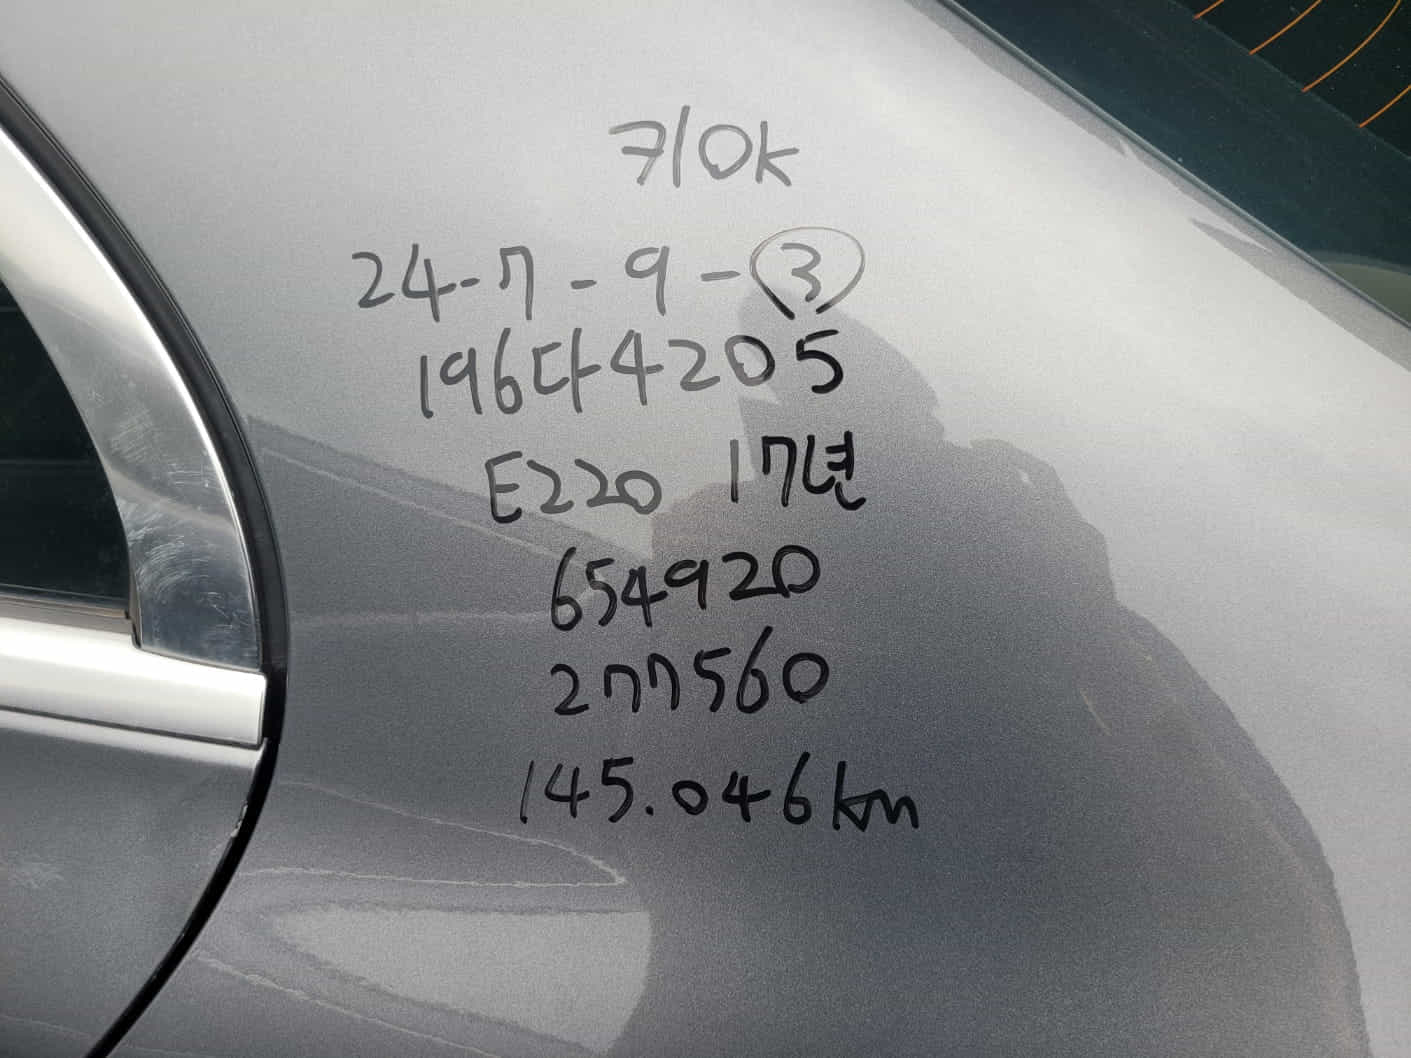 키ok
24-7-9-③
196다4205
E220 17년
654920
277560
145.046km